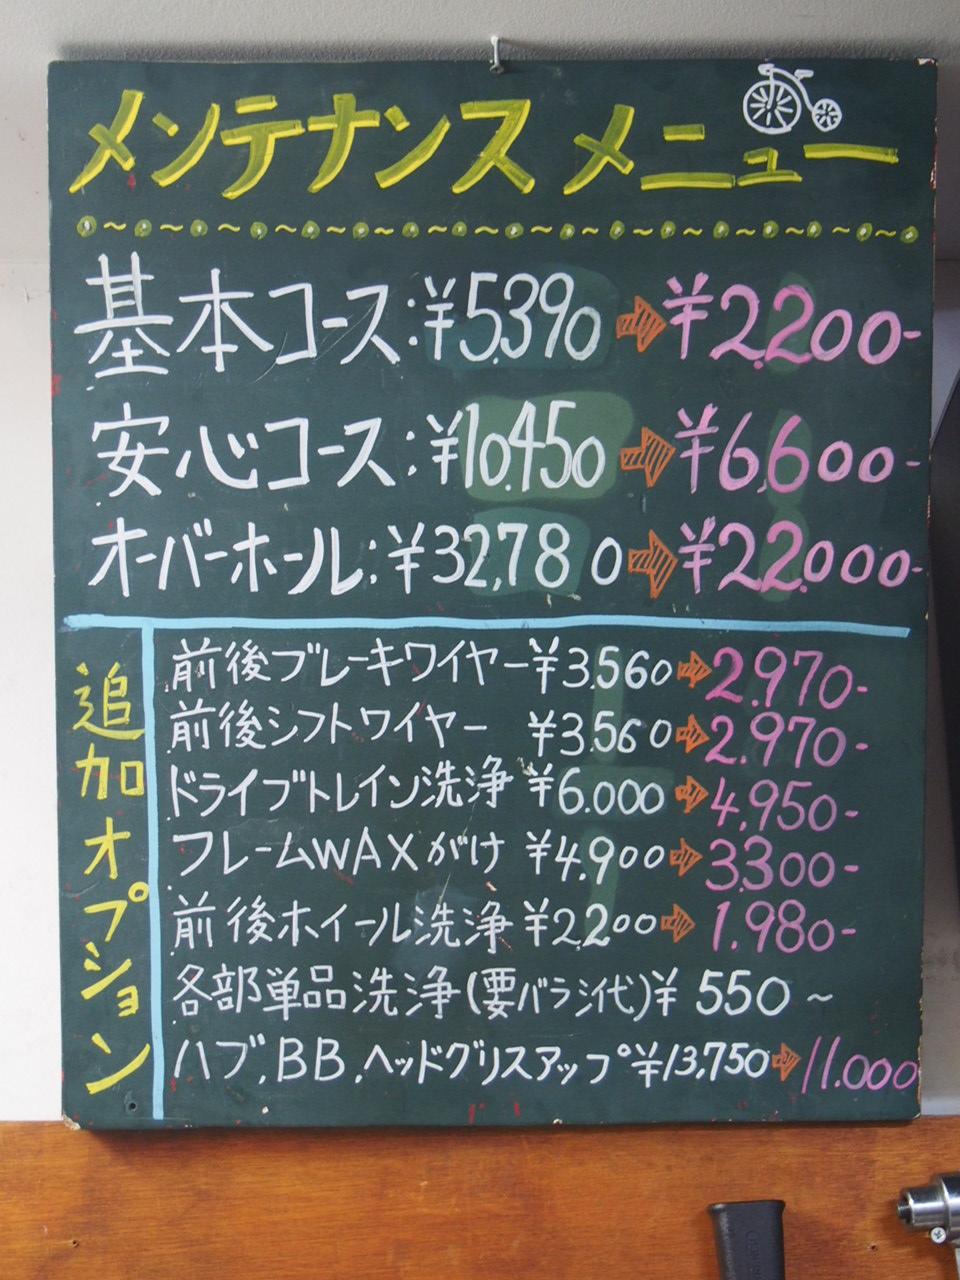 メンテナンスメニュー
基本コース:¥5.390➡¥2.200-
安心コース:¥10.450➡¥6,600-
オーバーホール:¥32,780➡¥22.000-
追加オプション
前後ブレーキワイヤー¥3.560➡2.970-
前後シフトワイヤー ¥3.560➡2.970-
ドライブトレイン洗浄 ¥6.000➡4,950-
フレームWAXがけ ¥4.900➡3.300-
前後ホイール洗浄 ¥2.200➡1.980-
各部単品洗浄(要バラシ代)¥550~
ハブ,BB,ヘッドグリスアップ¥13,750➡11.000